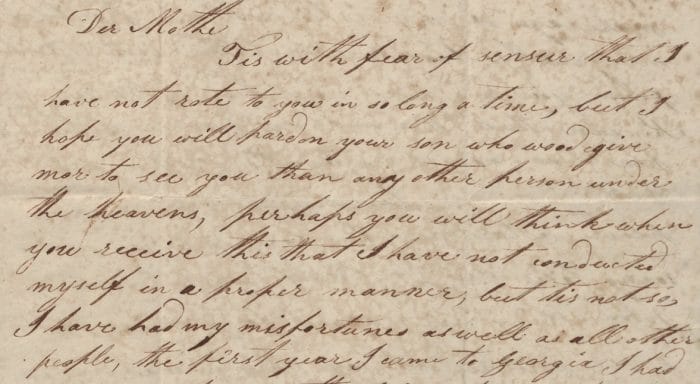 Der Mothe
Tis with fear of sensur that I
have not rote to you in so long a time, but I
hope you will pardon your son who wood give
mor to see you than any other person under
the heavens, perhaps you will think when
you receive this that I have not conducted
myself in a proper manner, but tis not so,
I have had my misfortunes as well as all other
people, the first year I came to Georgia I had